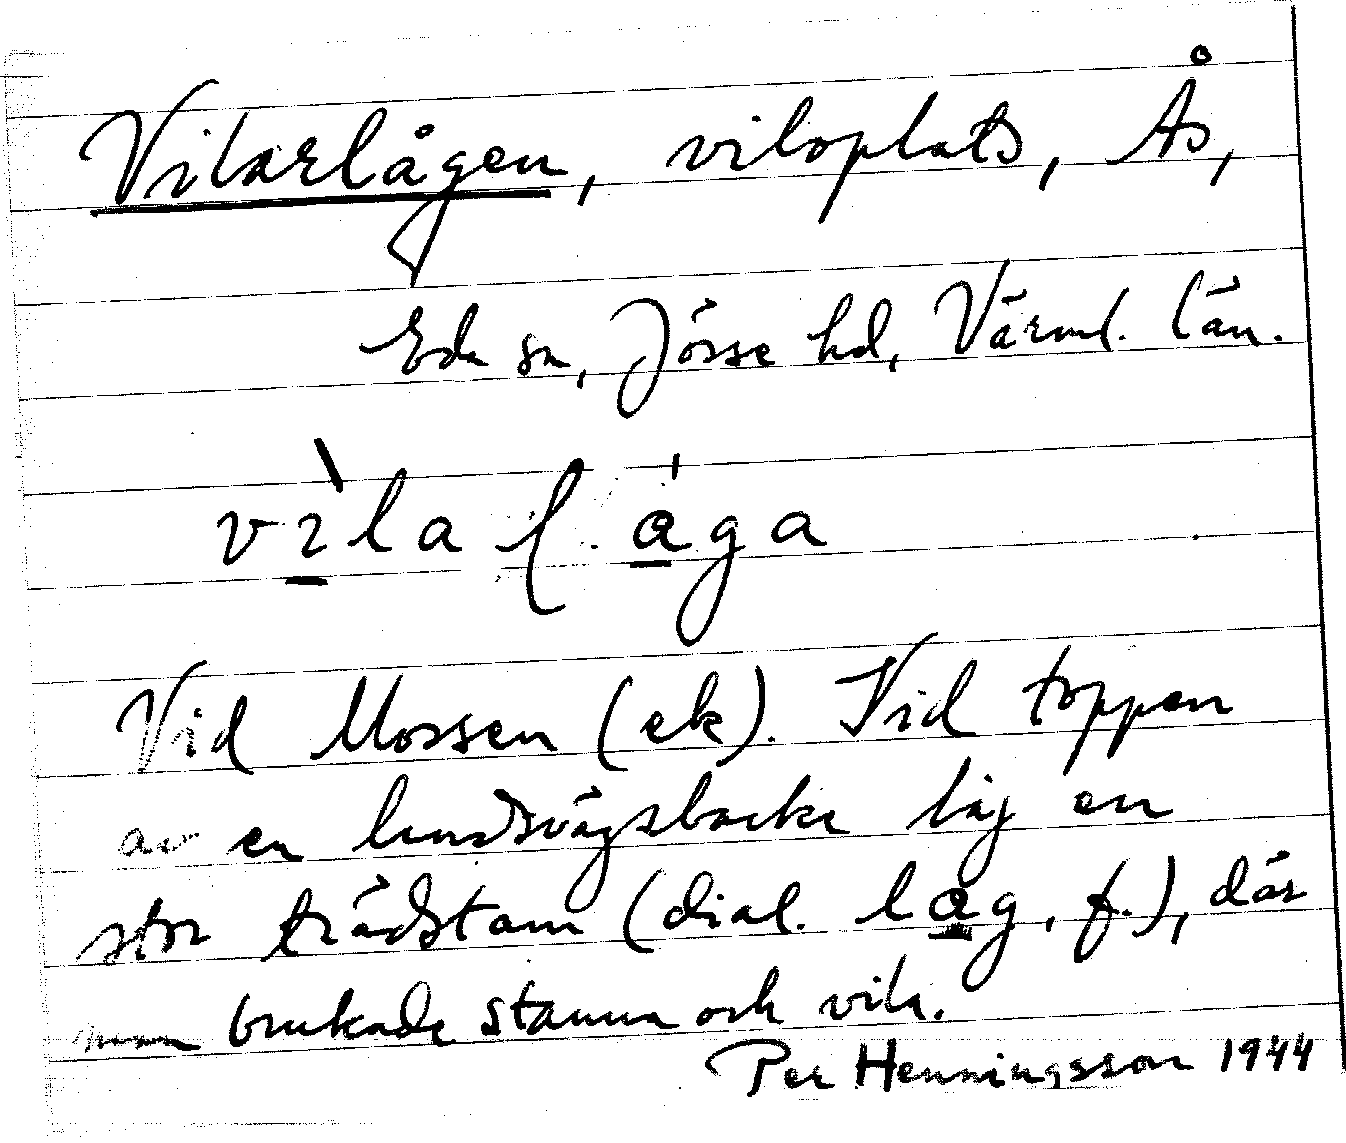 Vilarlågen, viloplats, Ås,
Eda sn, Jösse hd, Värml. län.
vìlaɭåga
Vid Mossen (ek). Vid toppen
av en landsvägsbacke låg en
stor trädstam (dial. låg, f.), där
man brukade stanna och vila.
Per Henningsson 1944